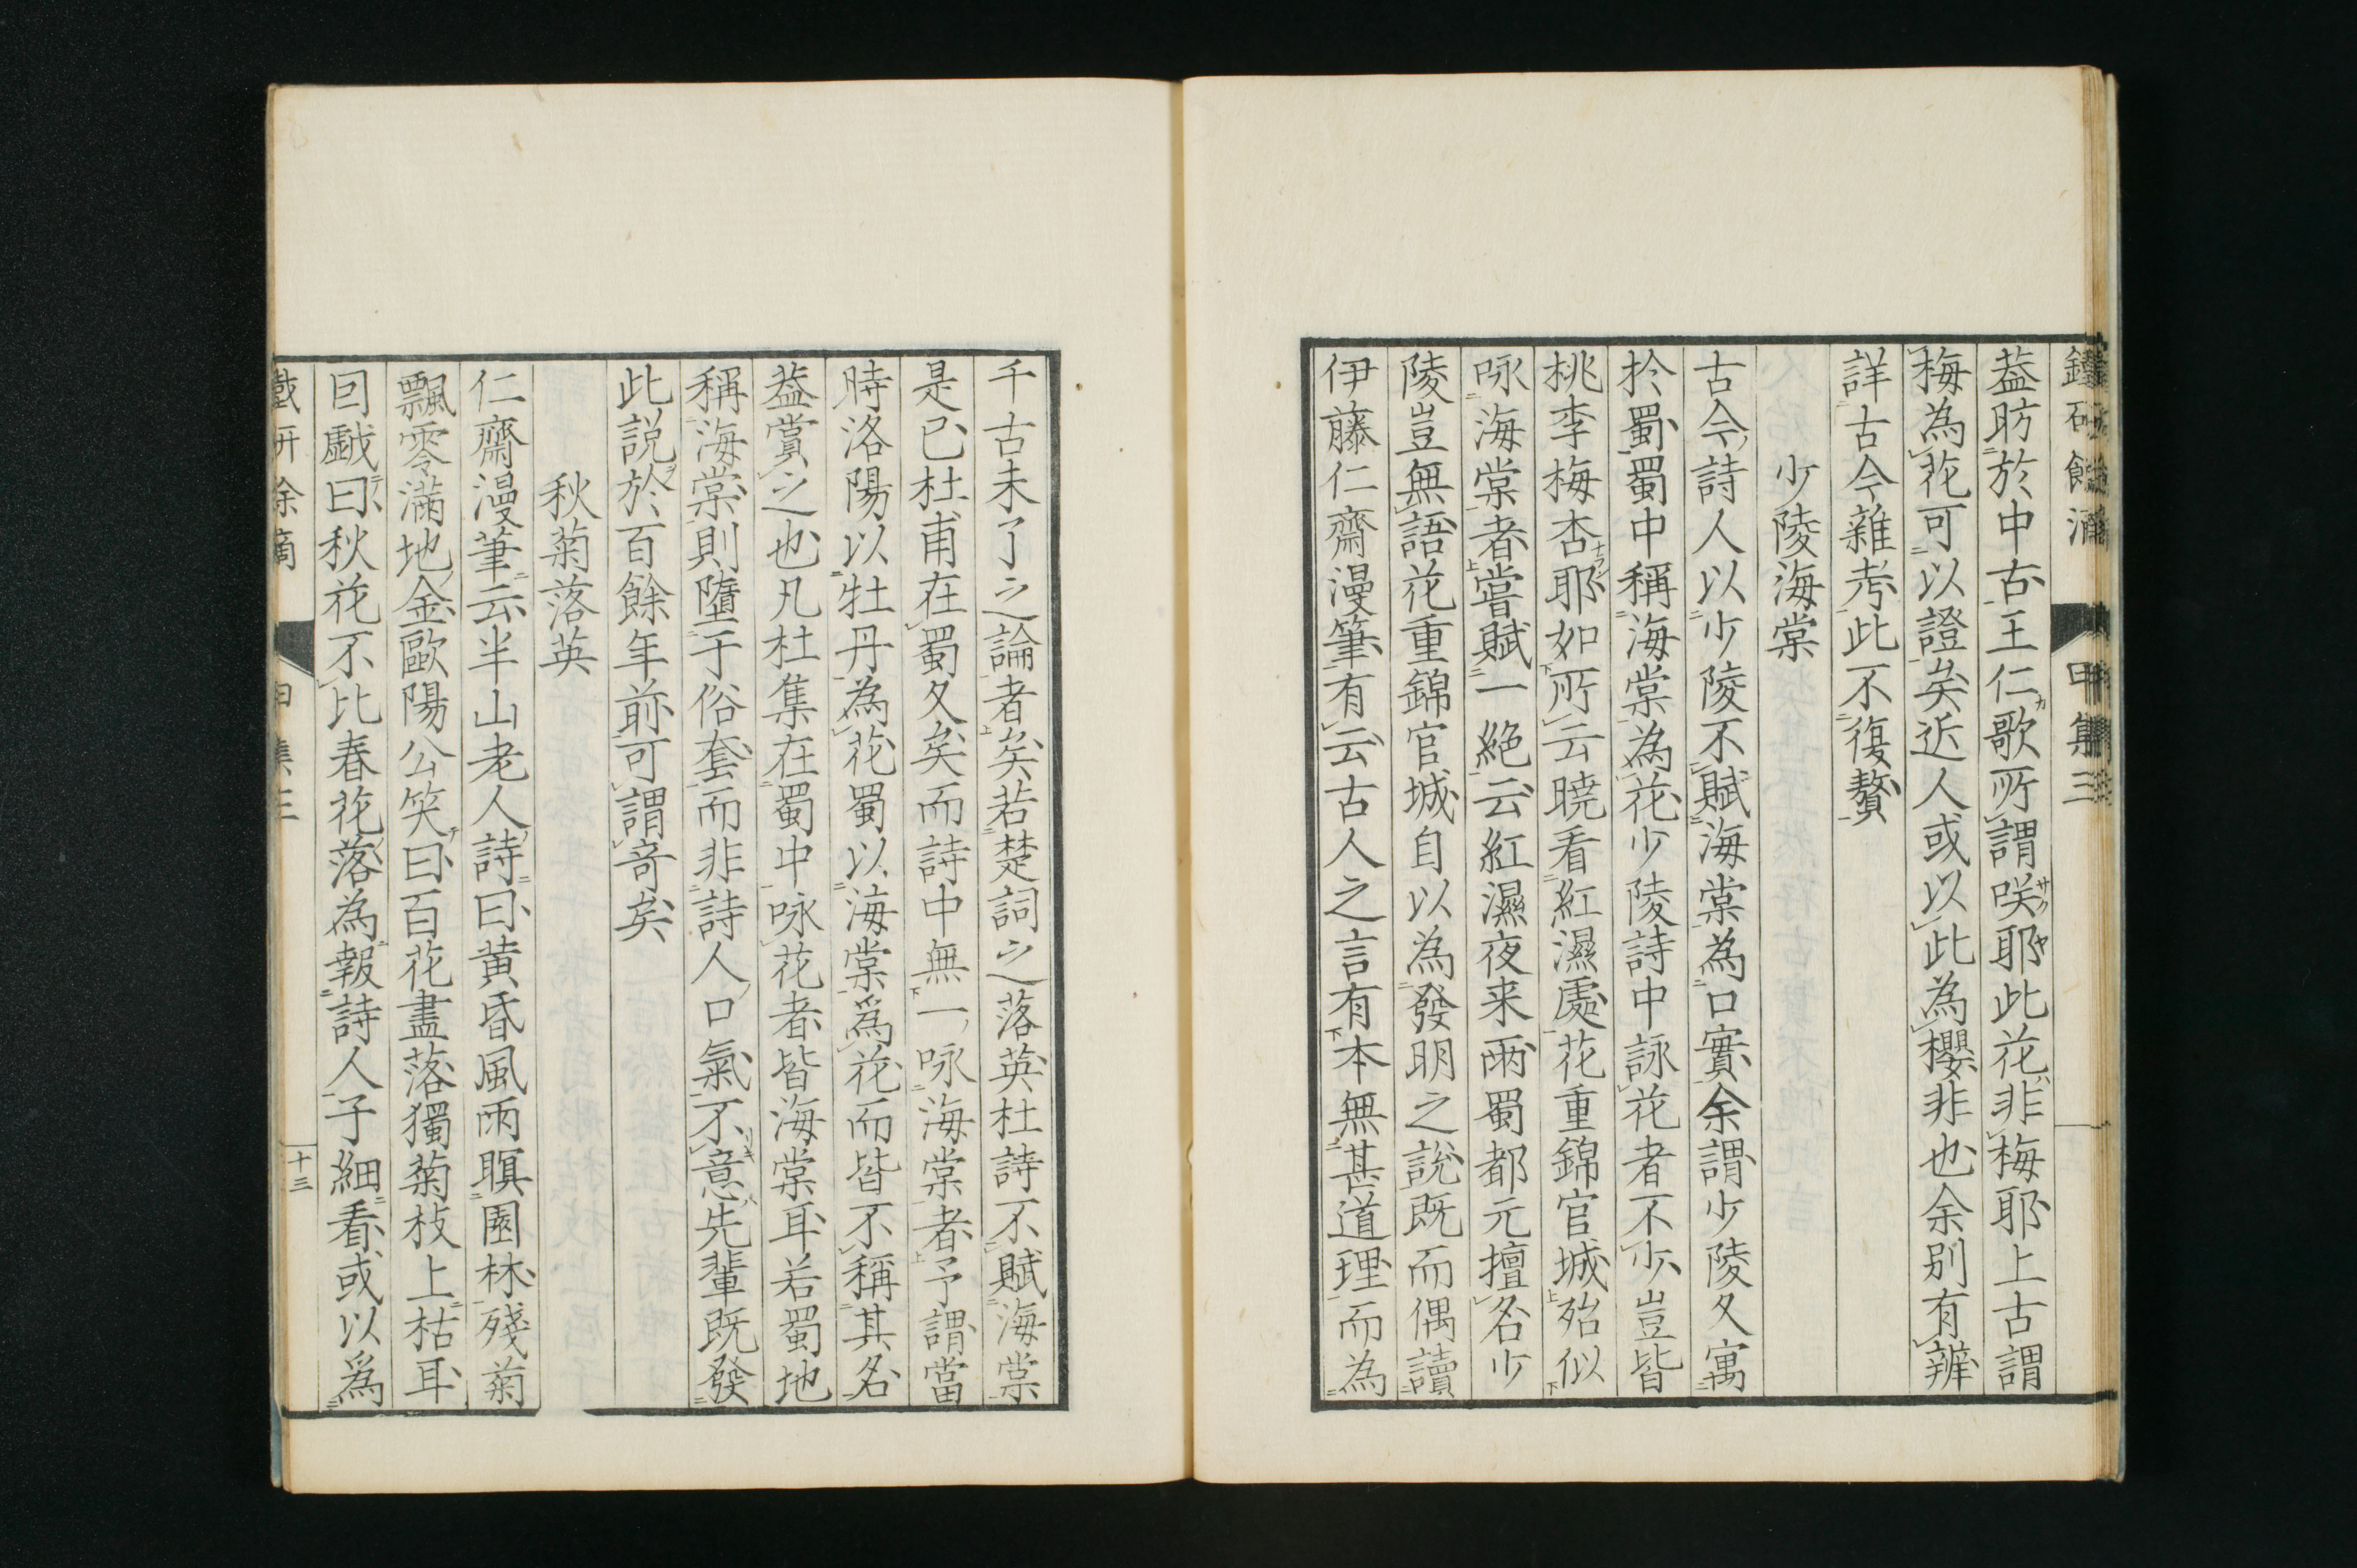 鐵研餘滴 甲集三
葢昉於中古王仁歌所謂咲耶此花非梅耶上古謂
梅為花可以證矣近人或以此為櫻非也余别有辨
詳古今雜考此不復贅
少陵海棠
古今詩人以少陵不賦海棠為口實余謂少陵久寓
於蜀蜀中稱海棠為花少陵詩中詠花者不少豈皆
桃李梅杏耶如所云曉看紅濕處花重錦官城殆似
咏海棠者嘗賦一絶云紅濕夜来雨蜀都元擅名少
陵豈無語花重錦官城自以為發明之說既而偶讀
伊藤仁齋漫筆有云古人之言有本無甚道理而為
千古未了之論者矣若楚詞之落英杜詩不賦海棠
是已杜甫在蜀久矣而詩中無一咏海棠者予謂當
時洛陽以牡丹為花蜀以海棠爲花而皆不稱其名
葢賞之也凡杜集在蜀中咏花者皆海棠耳若蜀地
稱海棠則墮于俗套而非詩人口氣不意先輩既發
此説於百餘年前可謂奇矣
秋菊落英
仁齋漫筆云半山老人詩曰黄昏風雨暝園林殘菊
飄零滿地金歐陽公笑曰百花盡落獨菊枝上枯耳
囙戯曰秋花不比春花落為報詩人子細看或以爲
十三